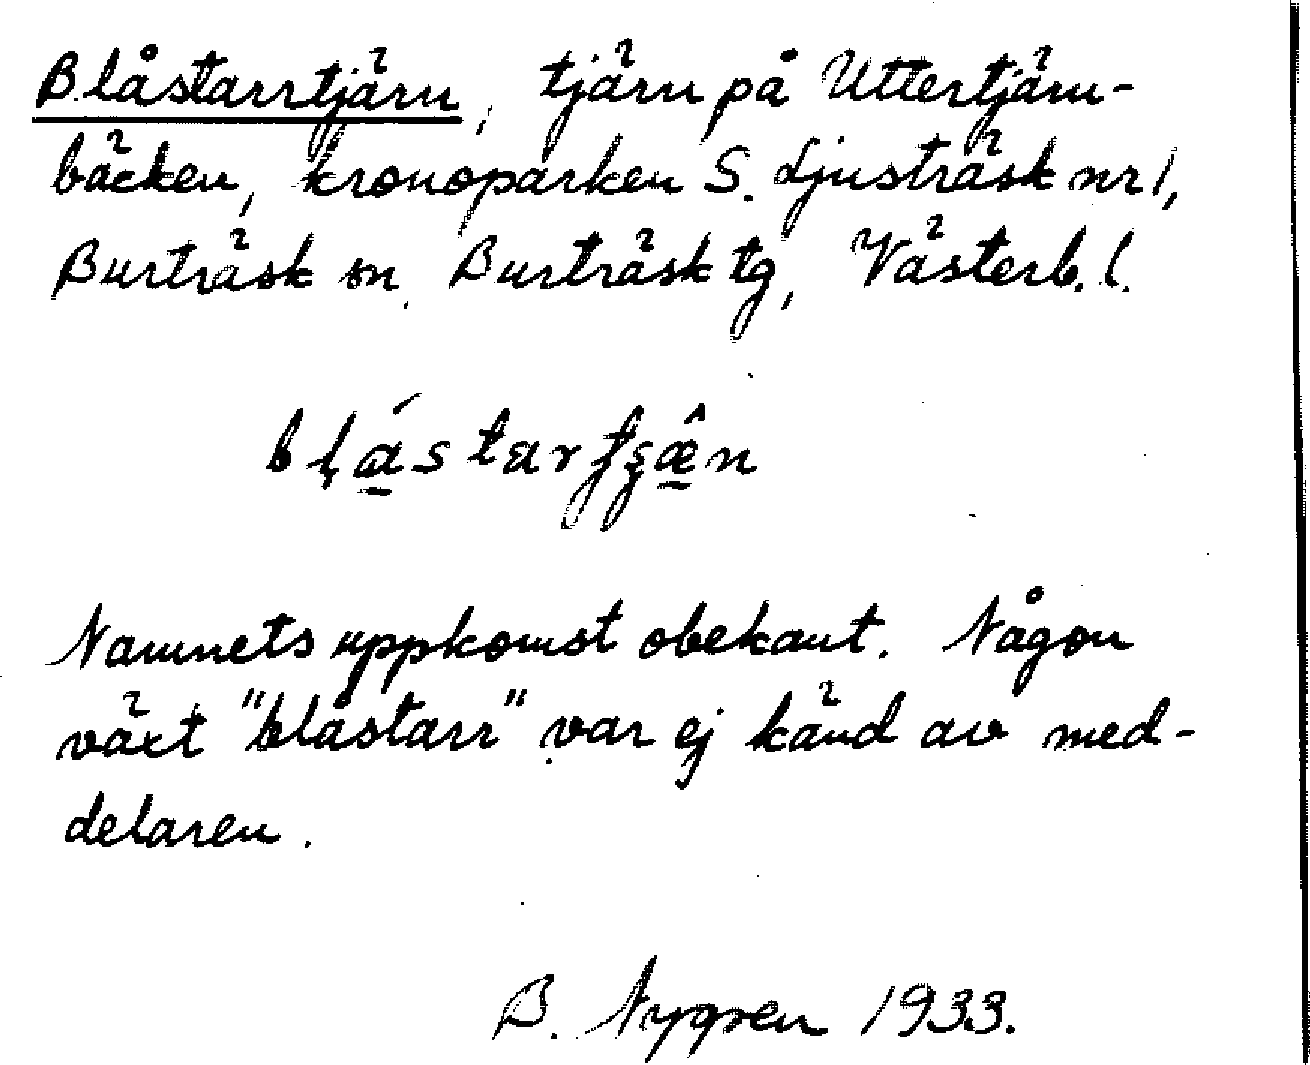 Blåstarrtjärn, tjärn på Uttertjärn-
bäcken, kronoparken S. Ljusträsk nr 1,
Burträsk sn, Burträsk tg, Västerb. l.
Namnets uppkomst obekant. Någon
växt "blåstarr" var ej känd av med-
delaren.
B. Nygren 1933.